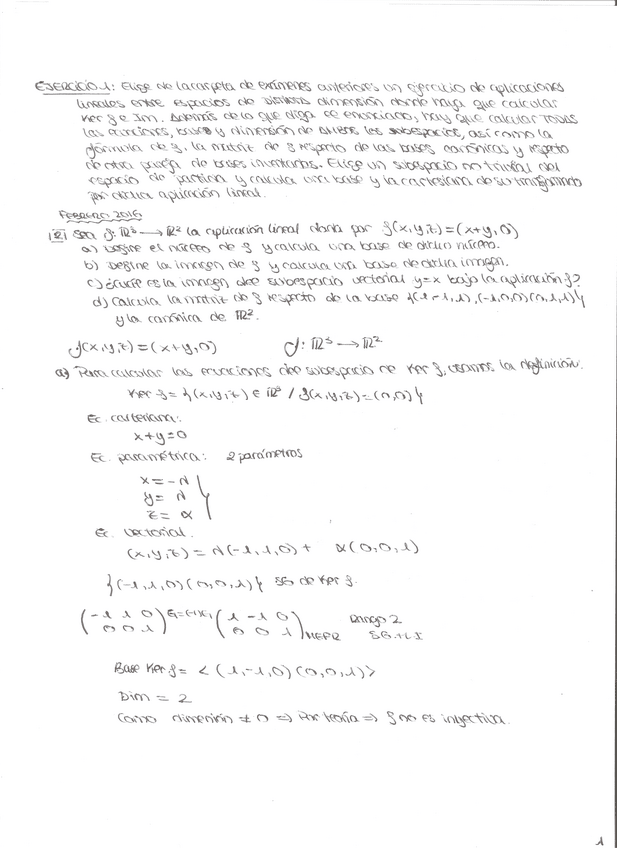 EJERCICIO 1: Elige de la carpeta de exámenes anteriores un ejercicio de aplicaciones
lineales entre espacios de distinta dimensión donde haya que calcular
Ker f e Im. Además de lo que diga el enunciado, hay que calcular TODAS
las ecuaciones, bases y dimensión de ambos los subespacios, así como la
fórmula de f, la matriz de f respecto de las bases canónicas y respecto
de otra pareja de bases inventadas. Elige un subespacio no trivial del
espacio de partida y calcula una base y la cartesiana de su transformado
por dicha aplicación lineal.
FEBRERO 2016
2) Sea f: ℝ³ → ℝ² la aplicación lineal dada por f(x,y,z)=(x+y,0)
a) Define el núcleo de f y calcula una base de dicho núcleo.
b) Define la imagen de f y calcula una base de dicha imagen.
c) ¿Cuál es la imagen del subespacio vectorial y=x bajo la aplicación f?
d) Calcula la matriz de f respecto de la base {(1,-1,1),(-1,0,0)(0,1,1)}
y la canónica de ℝ².
f(x,y,z)=(x+y,0) f: ℝ³ → ℝ²
a) Para calcular las ecuaciones del subespacio de Ker f, usamos la definición:
Ker f = {(x,y,z) ∈ ℝ³ / f(x,y,z)=(0,0)}
Ec. cartesiana:
x+y=0
Ec. paramétrica: 2 parámetros
x = -λ
y = λ
z = α }
Ec. vectorial.
(x,y,z) = λ(-1,1,0) + α(0,0,1)
{(-1,1,0)(0,0,1)} SG de Ker f.
(-1 1 0 / 0 0 1) E₁=(-1)E₁ (1 -1 0 / 0 0 1) MEFR Rango 2 SG+LI
Base Ker f = <(1,-1,0)(0,0,1)>
Dim = 2
Como dimensión ≠ 0 ⇒ Por teoría ⇒ f no es inyectiva.
1